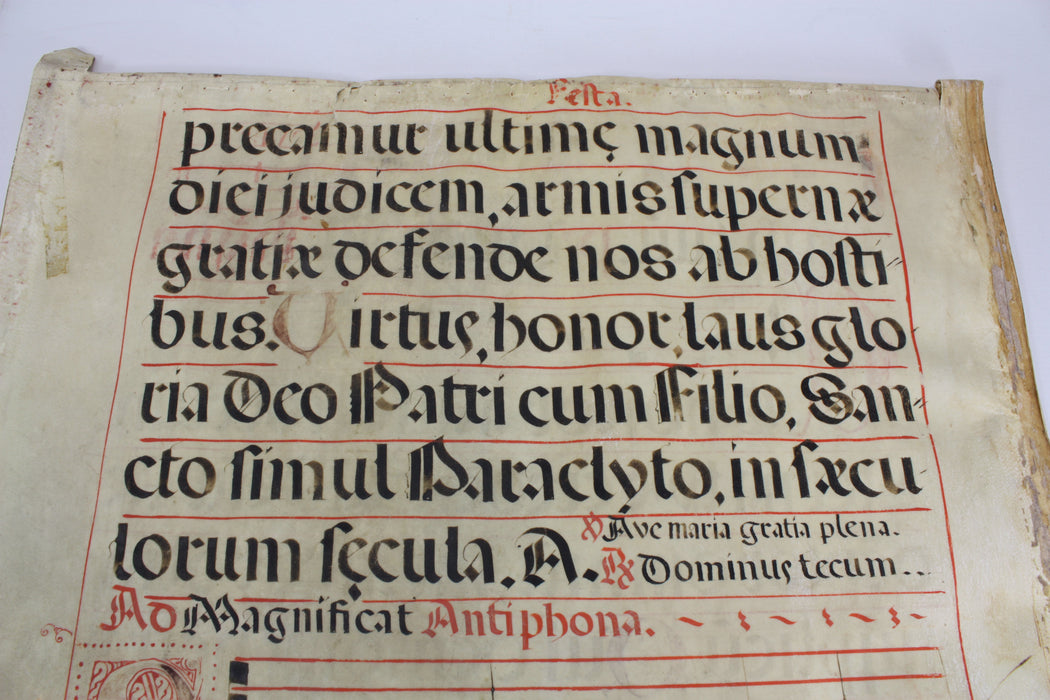 Festa.
precamur ultimę magnum
diei judicem, armis ſupernæ
gratiæ defende nos ab hoſti-
bus. Virtus, honor, laus glo
ria Deo Patri cum Filio, San-
cto ſimul Paraclyto, in ſæcu-
lorum ſęcula. A. ℣ Ave maria gratia plena.
℟ Dominus tecum..
Ad Magnificat Antiphona.